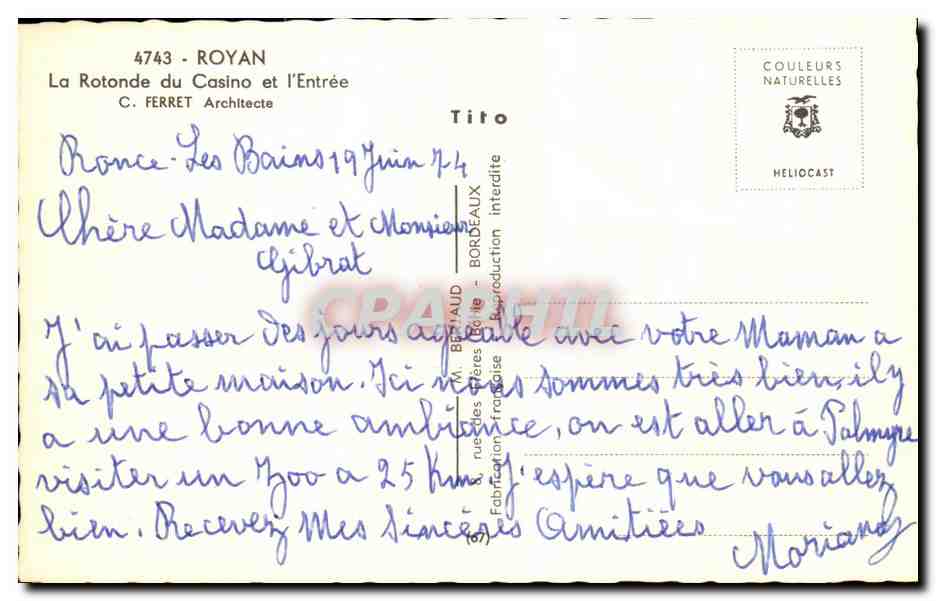 4743 - ROYAN
La Rotonde du Casino et l'Entrée
C. FERRET Architecte
COULEURS
NATURELLES
HELIOCAST
Tito
Ronce-Les Bains 19 Juin 74
Chère Madame et Monsieur
Gibrat
J'ai passer des jours agréable avec votre Maman a
sa petite maison. Ici nous sommes très bien, il y
a une bonne ambiance, on est aller à Palmyre
visiter un Zoo a 25 Km. J'espère que vous allez
bien. Recevez Mes Sincères Amitiées
M. BERJAUD
rue des Frères Bonie - BORDEAUX
Fabrication française Reproduction interdite
(67)
CPAPHIL